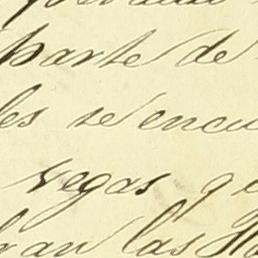 parte de
les se encu
vegas q
ran las Ha